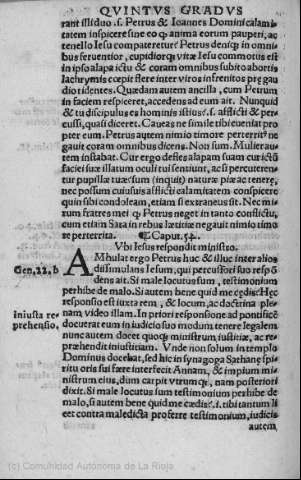 QVINTVS GRADVS
rant illi duo .s. Petrus & Ioannes Domini calami
tatem inspicere sine eo q; anima eorum paupert, ac
tenello Iesu compateretur? Petrus deniq; in omni
bus feruentior, cupidiorq; vitæ Iesu commotus est
in ipso alapæ ictu & coram omnibus subito abortis
lachrymis cœpit flere inter viros infrenitos præ gau
dio ridentes. Quædam autem ancilla, cum Petrum
in faciem respiceret, accedens ad eum ait. Nunquid
& tu discipulus es hominis istius? .s. afflicti & per
cussi, quasi diceret. Capeas ne simile tibi eueniat pro
pter eum. Petrus autem nimio timore perterrirus ne
gauit coram omnibus dicens. Non sum. Mulier au-
tem instabat. Cur ergo defles alapam suam cur ictū
faciei suæ illatum oculi tui sentiunt, ac si percuteren-
tur pupillæ tuæ: sum (inquit) naturæ piæ ac teneræ,
nec possum cuiusuis afflicti calamitatem conspicere
quin sibi condoleam, etiam si extraneus sit. Nec mi-
rum fratres mei q; Petrus neget in tanto conflictu,
cum etiam Sara in rebus lætitiæ negauit nimio timo
re perterrita.
Caput. 54.
Vbi Iesus respondit ministro.
Gen, 22, b
AMbulat ergo Petrus huc & illuc inter alios
dissimulans Iesum, qui percussori suo respō
dens ait. Si male locutus sum, testimonium
perhibe de malo. Si autem bene quid me cędis? Hęc
responsio est iuxta rem, & locum, ac doctrina ple-
nam, video illam. In priori responsione ad pontificē
iniusta re
prehensio,
docuerat eum in iudicio suo modum tenere legalem
nunc autem docet quoq; ministrum, iustitiæ, ac re-
prehendit iniustitiam. Vnde non solum in templo
Dominus docebat, sed hic in synagoga Sathanę spi
ritu oris sui fære interfecit Annam, & impium mi
nistrum eius, dum carpit vtrumq;, nam posteriori
dixit. Si male locutus sum testimonium perhibe de
malo, si autem bene quid me cædis?, i. tibi tantum li
cet contra maledicta proferre testimonium, iudicis
autem,
(c) Comunidad Autónoma de La Rioja